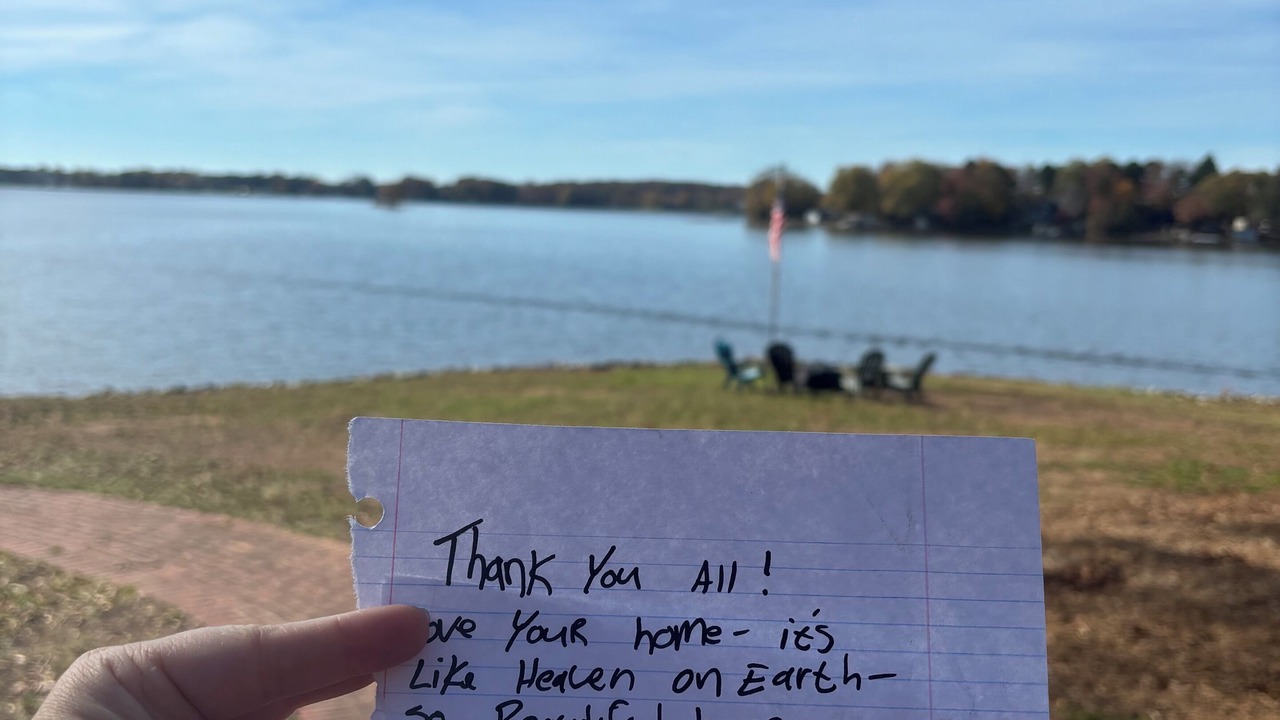 Thank You All!
ove Your home- it's
Like Heaven on Earth-
so